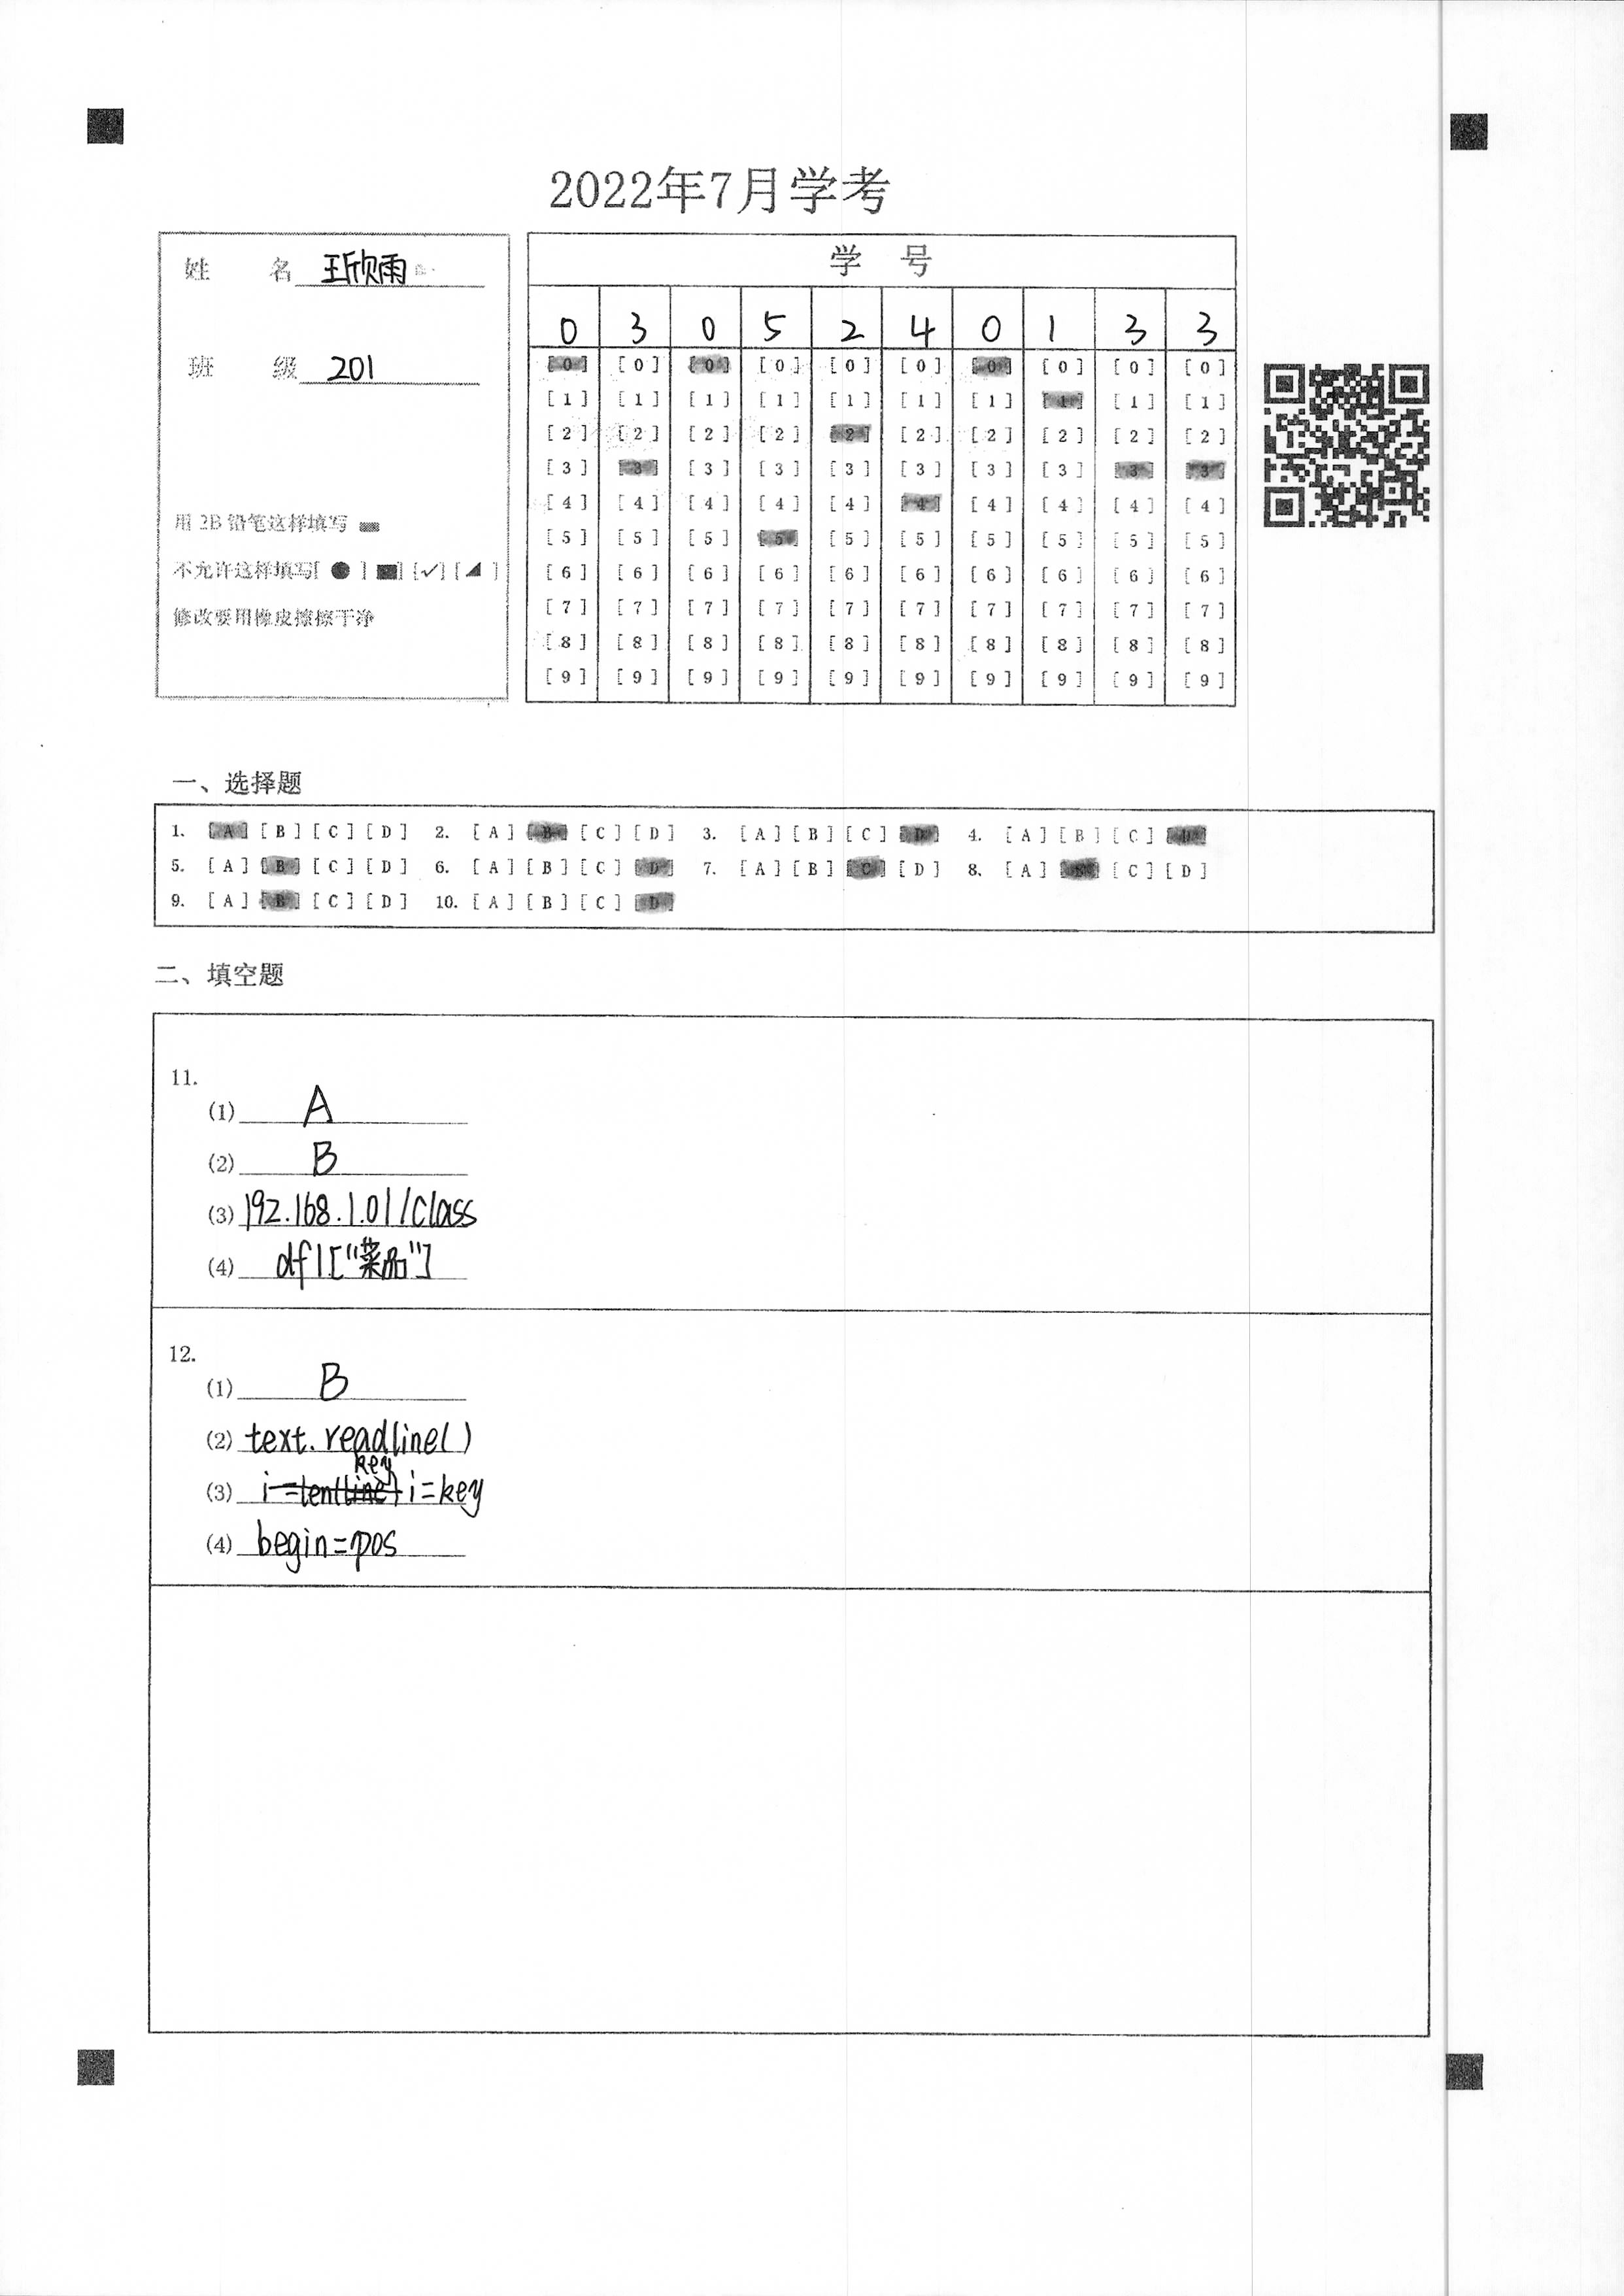 2022年7月学考
姓 名 王欣雨
班 级 201
用 2B 铅笔这样填写
不允许这样填写[ ● ] [■] [✓] [◢ ]
修改要用橡皮擦擦干净
学 号
0 3 0 5 2 4 0 1 3 3
[0] [0] [0] [0] [0] [0] [0] [0] [0] [0]
[1] [1] [1] [1] [1] [1] [1] [1] [1] [1]
[2] [2] [2] [2] [2] [2] [2] [2] [2] [2]
[3] [3] [3] [3] [3] [3] [3] [3] [3] [3]
[4] [4] [4] [4] [4] [4] [4] [4] [4] [4]
[5] [5] [5] [5] [5] [5] [5] [5] [5] [5]
[6] [6] [6] [6] [6] [6] [6] [6] [6] [6]
[7] [7] [7] [7] [7] [7] [7] [7] [7] [7]
[8] [8] [8] [8] [8] [8] [8] [8] [8] [8]
[9] [9] [9] [9] [9] [9] [9] [9] [9] [9]
一、选择题
1. [A] [B] [C] [D] 2. [A] [B] [C] [D] 3. [A] [B] [C] [D] 4. [A] [B] [C] [D]
5. [A] [B] [C] [D] 6. [A] [B] [C] [D] 7. [A] [B] [C] [D] 8. [A] [B] [C] [D]
9. [A] [B] [C] [D] 10. [A] [B] [C] [D]
二、填空题
11.
(1) A
(2) B
(3) 192.168.1.01/class
(4) df1["菜品"]
12.
(1) B
(2) text.readline()
(3) i=key
(4) begin=pos